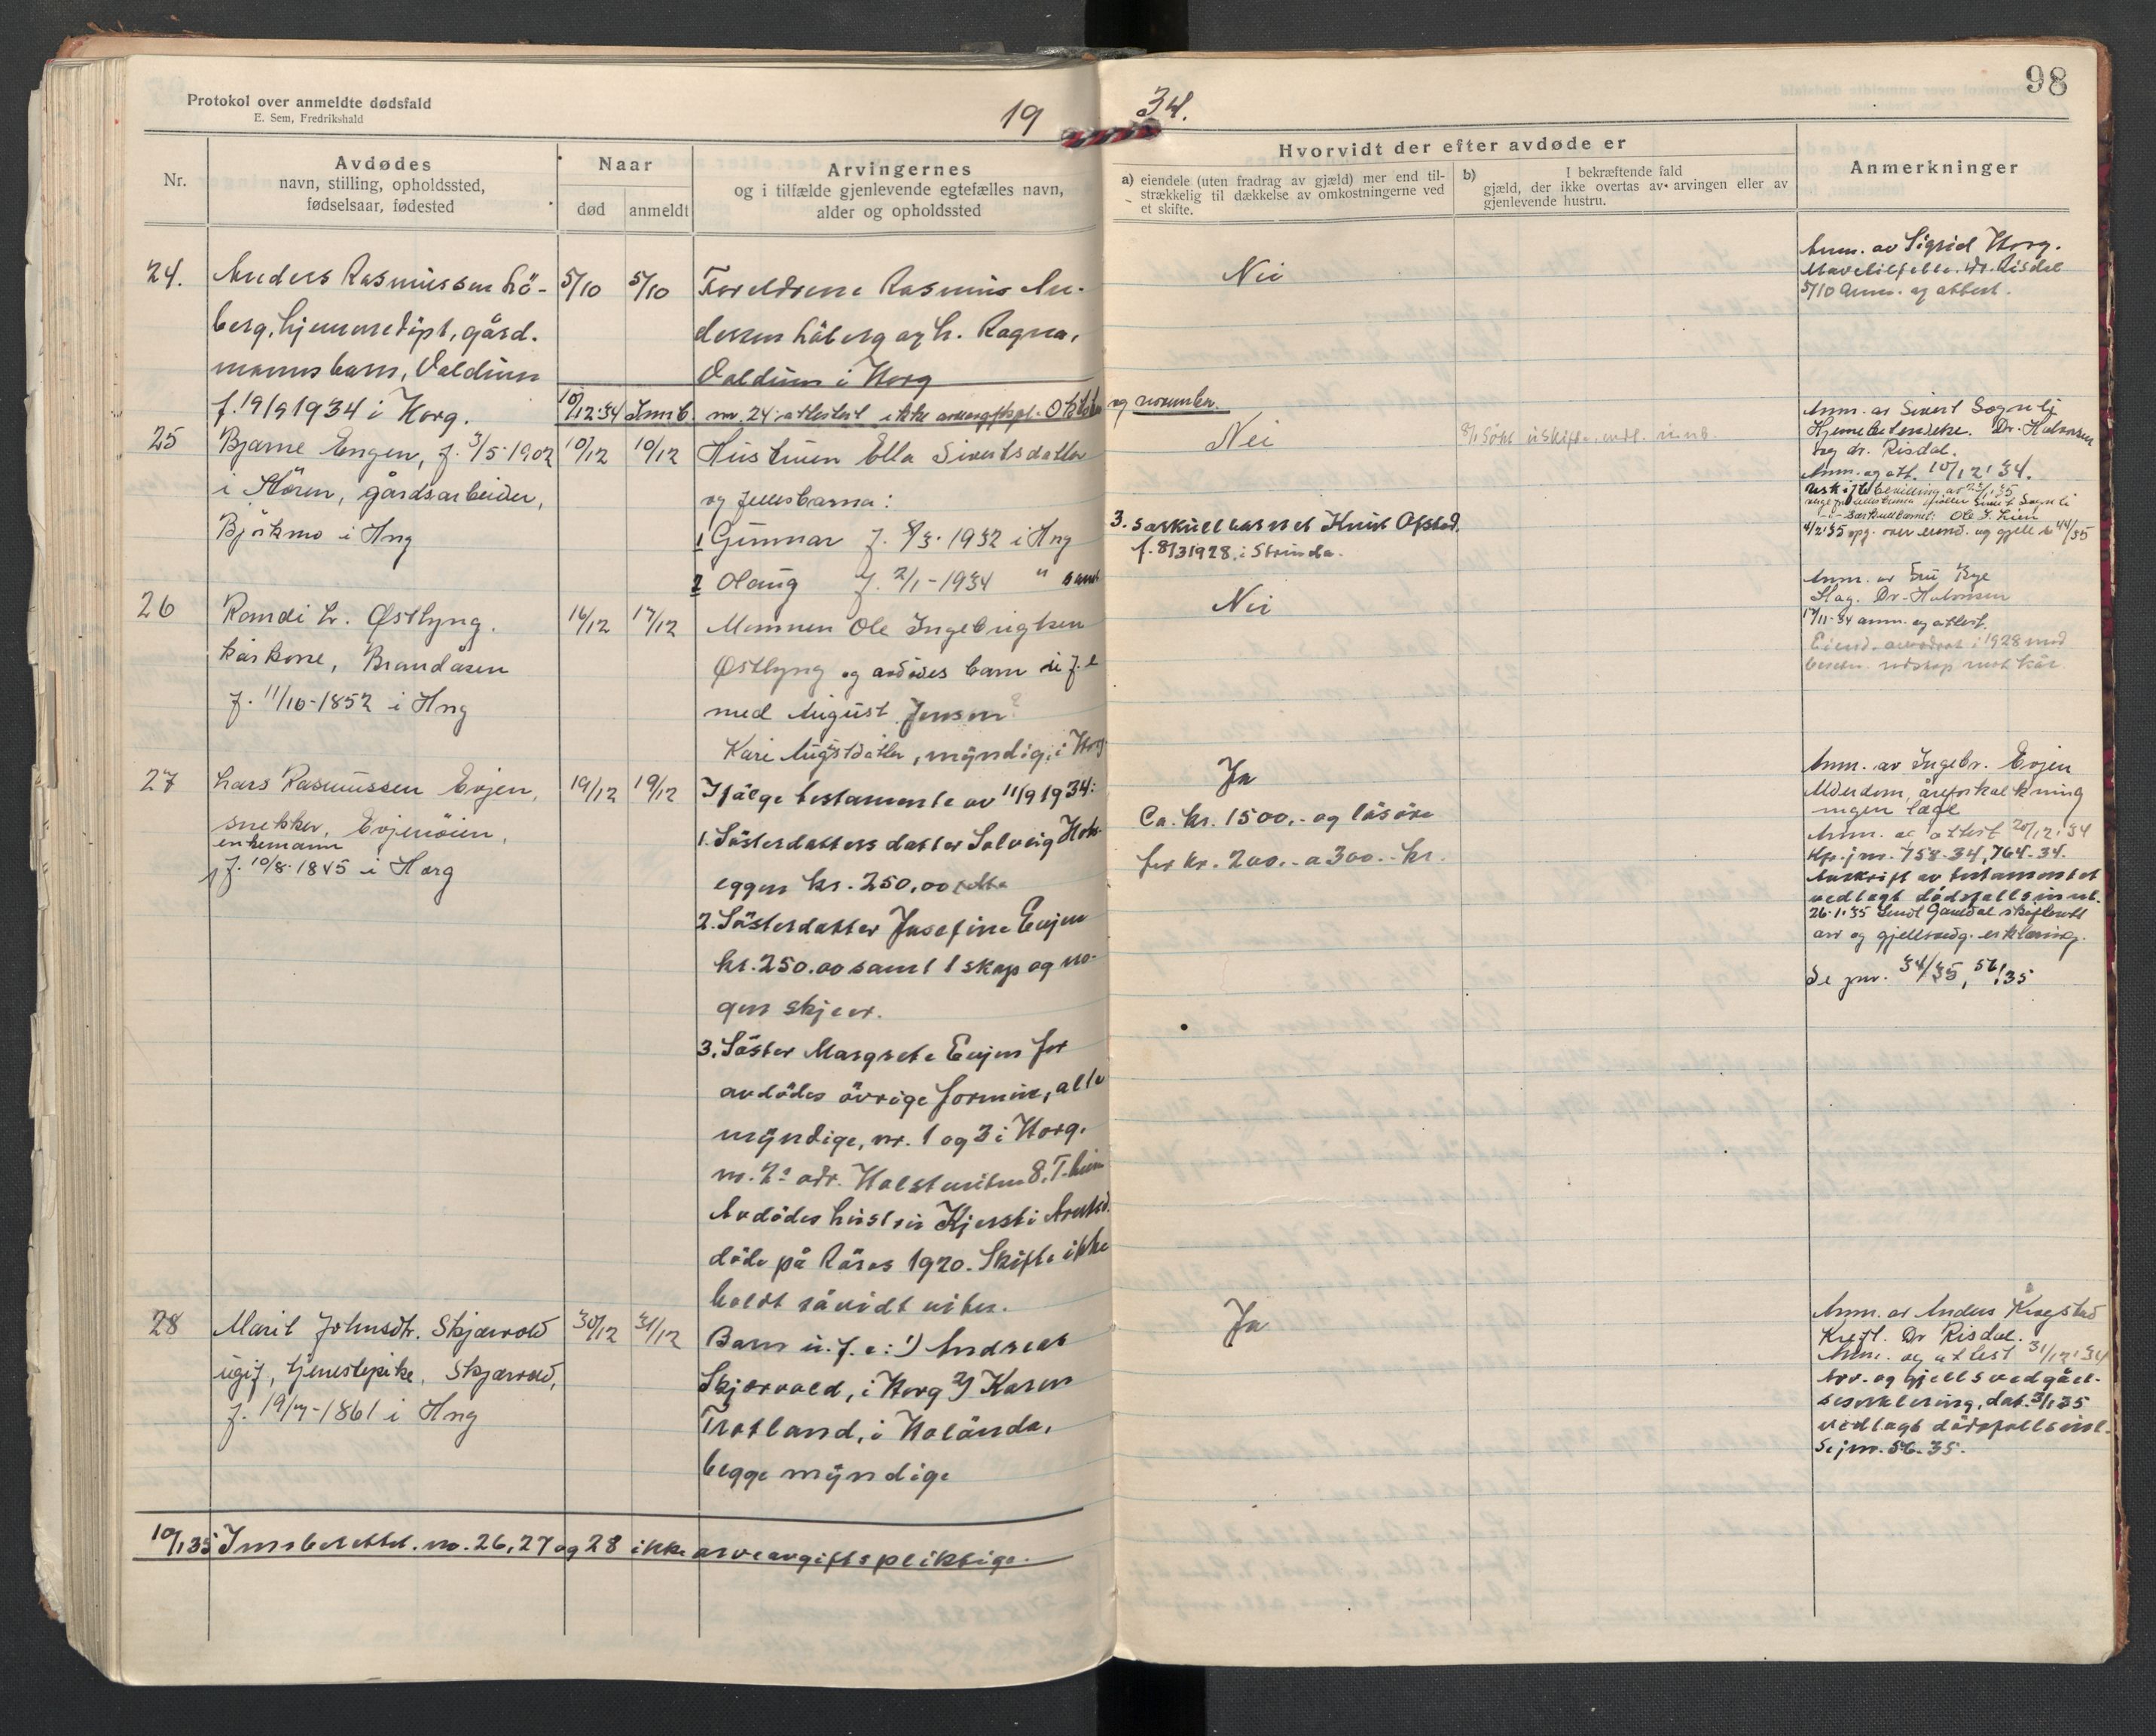 Protokol over anmeldte dødsfald
E. Sem, Fredrikshald
19
34.
98
Nr.
Avdødes
navn, stilling, opholdssted,
fødselsaar, fødested
Naar
død
anmeldt
Arvingernes
og i tilfælde gjenlevende egtefælles navn,
alder og opholdssted
Hvorvidt der efter avdøde er
a) eiendele (uten fradrag av gjæld) mer end til-
strækkelig til dækkelse av omkostningerne ved
et skifte.
b) I bekræftende fald
gjæld, der ikke overtas av arvingen eller av
gjenlevende hustru.
Anmerkninger
24.
Anders Rasmussen Lö-
berg, hjemmedöpt, gård-
mannsbarn, Valdum
f. 19/9 1934 i Horg.
5/10
5/10
Foreldrene Rasmus An-
dersen Löberg og h. Ragna,
Valdum i Horg
Nei
Anm. av Sigrid Horg.
Dr. Risdal
5/10 Anm. og attest.
10/12.34 Innb. nr. 24 attestert ikke arveavgiftspl. Oktober
og november.
25
Bjarne Engen, f. 3/5-1902
i Stören, gårdsarbeider,
Björkmo i Hng
10/12
10/12
Hustruen Ella Sivertsdatter
og fellesbarna:
1 Gunnar f. 8/3-1932 i Hng
2 Olaug f. 2/1-1934 " samt
Nei
3. særkullbarnet Knut Ofstad,
f. 8/3 1928 i Strinda.
Anm. av Sivert Sognli
Hjernebetendelse. Dr. Halvorsen
og dr. Risdal.
Anm. og att. 10/12 '34.
særkullbarnet: Ole J. Lien
4/2 '35 opg. over eiend. og gjell 44/35
26
Randi L. Østlyng,
kårkone, Brandåsen
f. 11/10-1852 i Hng
16/12
17/12
Mannen Ole Ingebrigtsen
Østlyng og avdödes barn u. f. e
med August Jensen?
Kari Augustdatter, myndig, i Horg
Nei
Anm. av Fru Rye
Slag. Dr. Halvorsen
17/11-34 anm. og attest.
27
Lars Rasmussen Evjen,
snekker, Evjenöien,
enkemann
f. 10/8-1845 i Horg
19/12
19/12
Ifölge testamente av 11/9 1934:
1. Sösterdatters datter Solveig Hok-
eggen kr. 250,00
2. Sösterdatter Josefine Evjen
kr. 250.00 samt 1 skap og no-
gen skjeer.
3. Söster Margrete Evjen for
avdödes övrige formue, alle
myndige, nr. 1 og 3 i Horg.
nr. 2's adr. 8, T.heim
Avdödes hustru Kjersti
döde på Röros 1920. Skifte ikke
holdt såvidt vites.
Ja
Ca. kr. 1500,- og lösöre
for kr. 200,- a 300.- kr.
Anm. av Ingebr. Evjen
Alderdom, åreforkalkning
ingen læge
Anm. og attest 20/12 '34
jnr. 758-34, 764-34.
Avskrift av testamentet
vedlagt dödsfallsinnb.
26-1-35 Sendt Gauldal skifterett
arv og gjellsvedg. erklæring.
Se jnr. 34/35, 56/35
28
Marit Johnsdtr. Skjærvold
ugif, tjenestepike, Skjærvold,
f. 19/7-1861 i Hng
30/12
31/12
Barn u. f. e: 1) Andreas
Skjærvold, i Horg 2) Karen
Trotland, i Hølanda,
begge myndige
Ja
Anm. av Anders Krogstad
Kreft. Dr Risdal.
Anm. og attest 31/12 '34
Arv- og gjellsvedgåel-
seserklæring, dat. 3/1 35
vedlagt dödsfallsinnb.
Se jnr. 56-35.
10/1 35 Innberettet. nr. 26, 27 og 28 ikke arveavgiftspliktige.